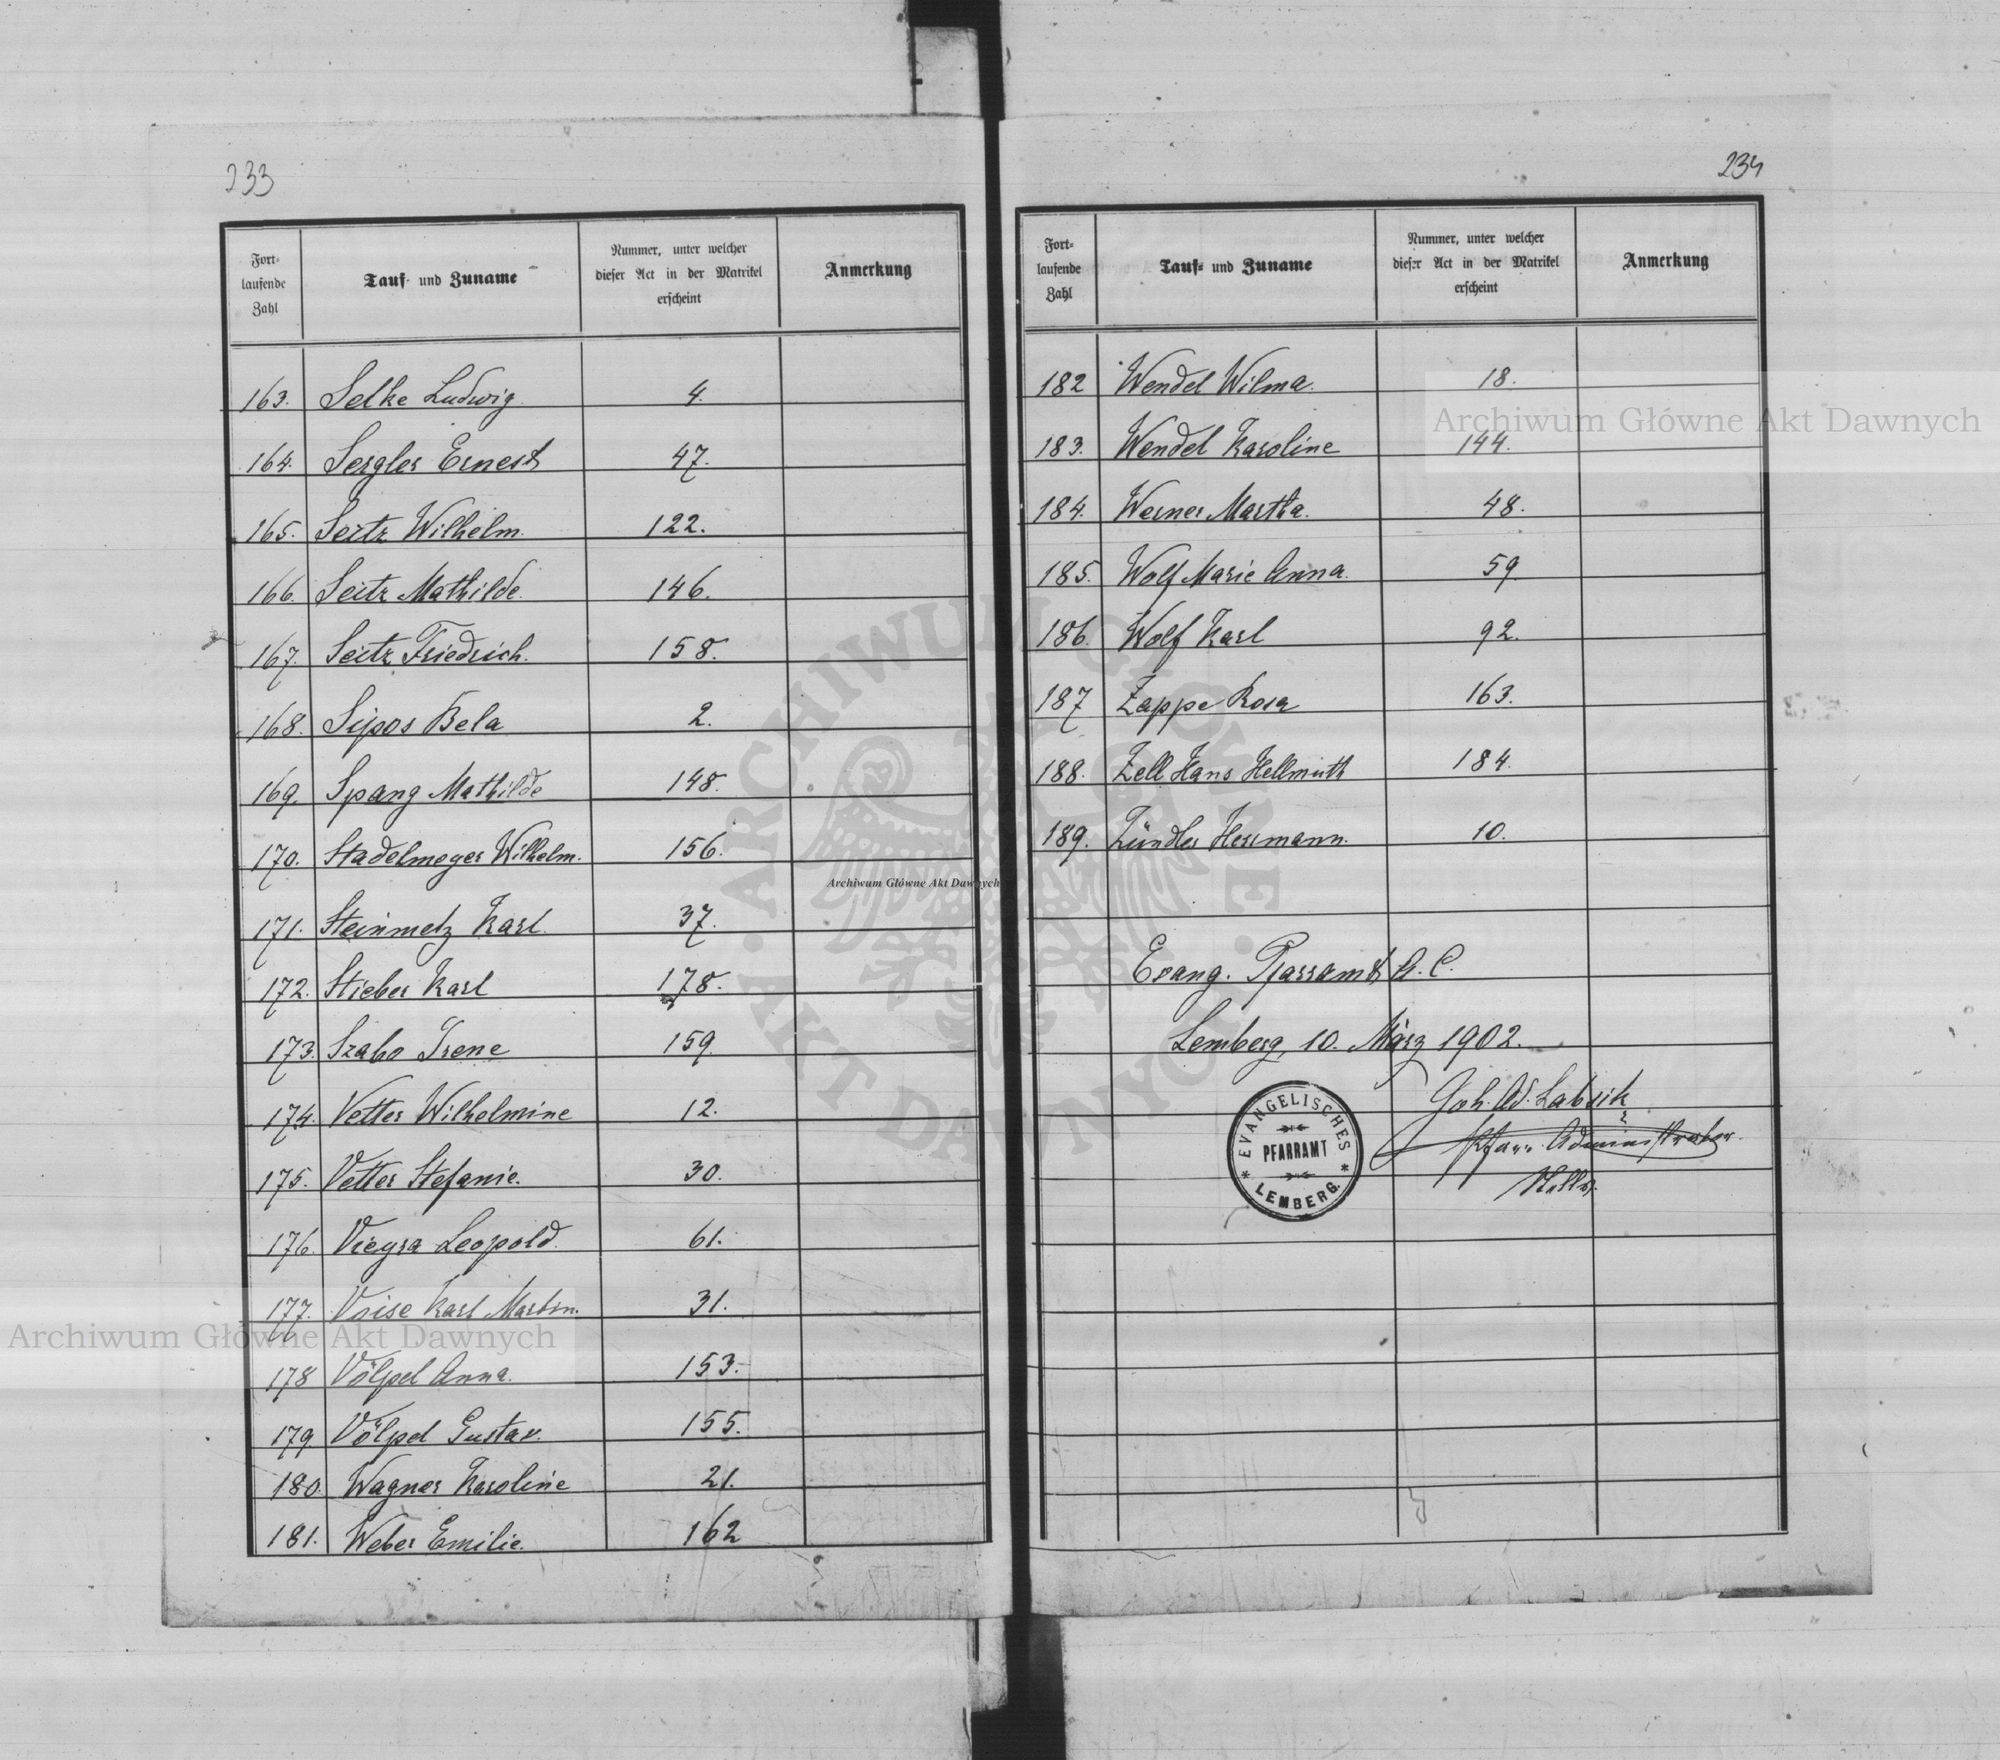 233
Fort-
laufende
Zahl
Tauf- und Zuname
Nummer, unter welcher
dieser Act in der Matrikel
erscheint
Anmerkung
163. Selke Ludwig 4.
164. Sergler Ernest 47.
165. Seitz Wilhelm. 122.
166. Seitz Mathilde. 146.
167. Seitz Friedrich. 158.
168. Sipos Bela 2.
169. Spang Mathilde 148.
170. Stadelmeyer Wilhelm. 156.
171. Steinmetz Karl. 37.
172. Stieber Karl 178.
173. Szabo Irene 159.
174. Vetter Wilhelmine 12.
175. Vetter Stefanie. 30.
176. Vieyra Leopold. 61.
177. Voise Karl Martin. 31.
178 Völpel Anna. 153.
179. Völpel Gustav. 155.
180. Wagner Karoline 21.
181. Weber Emilie. 162
234
Fort-
laufende
Zahl
Tauf- und Zuname
Nummer, unter welcher
dieser Act in der Matrikel
erscheint
Anmerkung
182 Wendel Wilma. 18.
183. Wendel Karoline 144.
184. Werner Martha. 48.
185. Wolf Marie Anna. 59.
186. Wolf Karl 92.
187 Zappe Rosa 163.
188. Zell Hans Hellmuth 184.
189. Zündler Hermann. 10.
Evang. Pfarramt A. C.
Lemberg, 10. März 1902.
Joh. Ad. Labsik
Pfarr. Administrator
EVANGELISCHES
PFARRAMT
LEMBERG.
Archiwum Główne Akt Dawnych
Archiwum Główne Akt Dawnych
Archiwum Główne Akt Dawnych
ARCHIWUM GŁÓWNE
AKT DAWNYCH